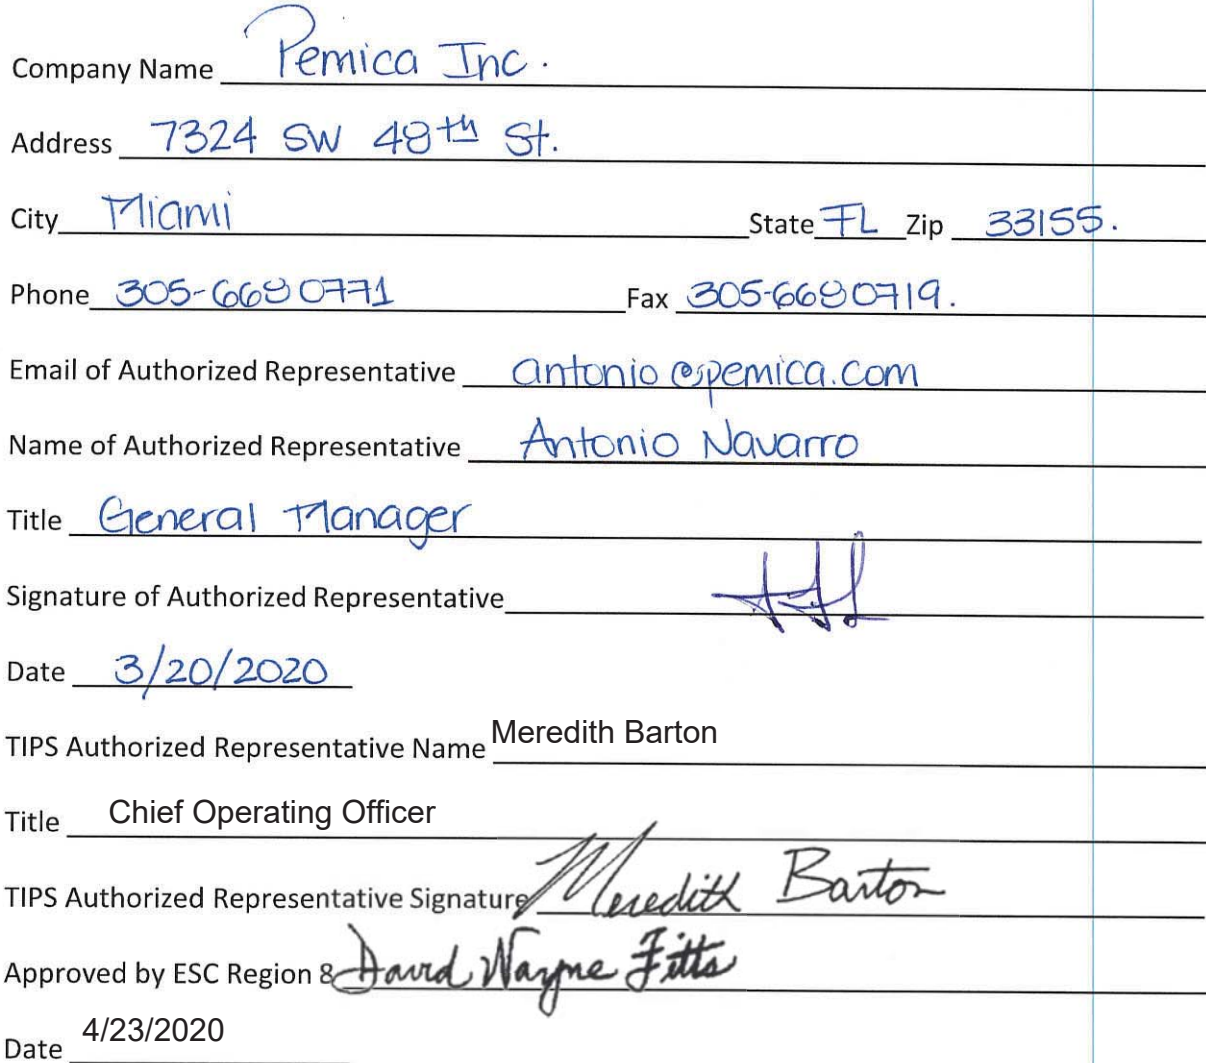 Company Name Pemica Inc.
Address 7324 SW 48th St.
City Miami State FL Zip 33155.
Phone 305-6680771 Fax 305-6680719.
Email of Authorized Representative antonio@pemica.com
Name of Authorized Representative Antonio Navarro
Title General Manager
Signature of Authorized Representative
Date 3/20/2020
TIPS Authorized Representative Name Meredith Barton
Title Chief Operating Officer
TIPS Authorized Representative Signature Meredith Barton
Approved by ESC Region 8 David Wayne Fitts
Date 4/23/2020